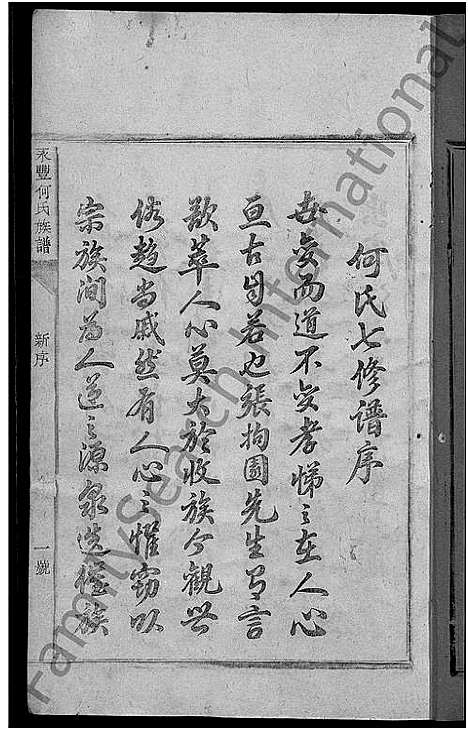 何氏七修谱序
世变而道不变孝悌之在人心
亘古自若也張拘園先生有言
歙萃人心莫大於收族今觀世
俗趋尚戚然有人心之惟窃以
宗族间為人道之源泉迭經族
永豐何氏族譜
新序
一號
FamilySearch International